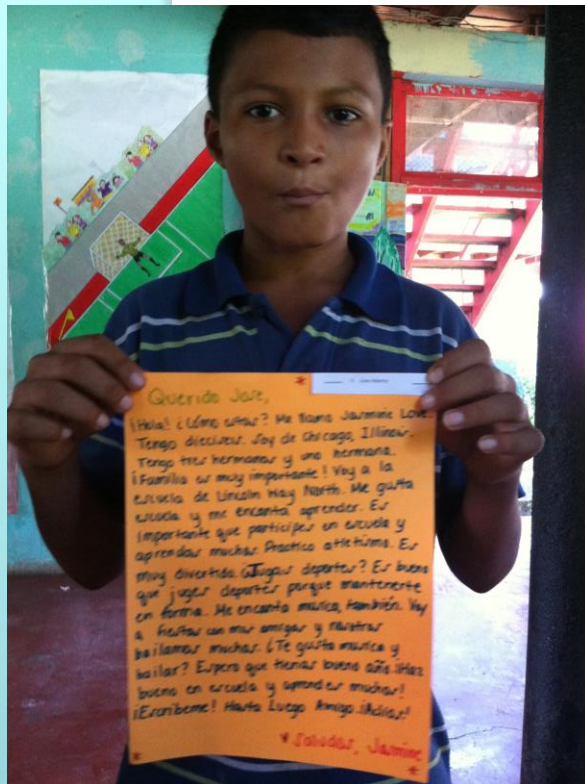 Querido Jose,
¡Hola! ¿Cómo estas? Me llamo Jasmine Love.
Tengo dieciseis. Soy de Chicago, Illinois.
Tengo tres hermanos y una hermana.
¡Familia es muy importante! Voy a la
escuela de Lincoln Way North. Me gusta
escuela y me encanta aprender. Es
importante que participes en escuela y
aprendas muchas. Practico atletismo. Es
muy divertido. ¿Juegas deportes? Es bueno
que juges deportes porque mantenerte
en forma. Me encanta musica, también. Voy
a fiestas con mis amigas y nosotras
bailamos muchas. ¿Te gusta musica y
bailar? Espero que tienas bueno año. ¡Haz
bueno en escuela y aprendes muchas!
¡Escríbeme! Hasta Luego Amigo. ¡Adios!
Saludas, Jasmine